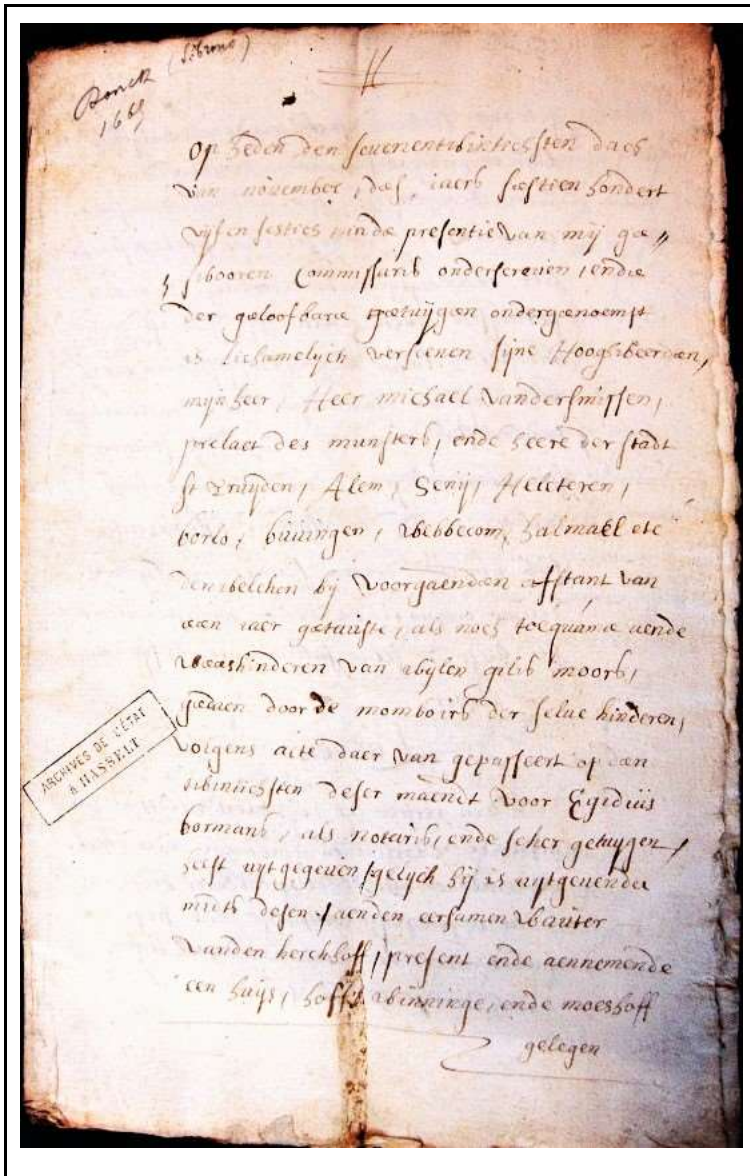 Donck (Librme)
1665
Op heden den seuenentwintichsten dach
van november, des iaers sestien hondert
vijf en sestich in de presentie van mij ge„
swooren Commissaris onderscreven, ende
der geloofbare getuijgen ondergenoempt
is lichamelijch verscenen sijne Hooghweerden,
mijn heer, Heer michael vandersmissen,
prelaet des munsters, ende heere der stadt
st Truijden, Alem, Seny, Heleteren,
borlo, buvingen, webbecom, halmael etc
den welchen bij voorgaenden affstant van
een iaer getauste, als noch toequame aende
weeskinderen van wijlen gilis moors,
gedaen door de momboirs der selve kinderen,
volgens acte daer van gepasseert op den
twintichsten deser maendt voor Egidius
bormans, als notaris, ende seker getuygen,
heeft uytgegeven, gelych hij is uytgevende
midts desen, aenden eersamen wauter
vanden kerckhoff, present ende aennemende
een huijs, hoff, winninge, ende moeshoff
gelegen
ARCHIVES DE L'ÉTAT
à HASSELT